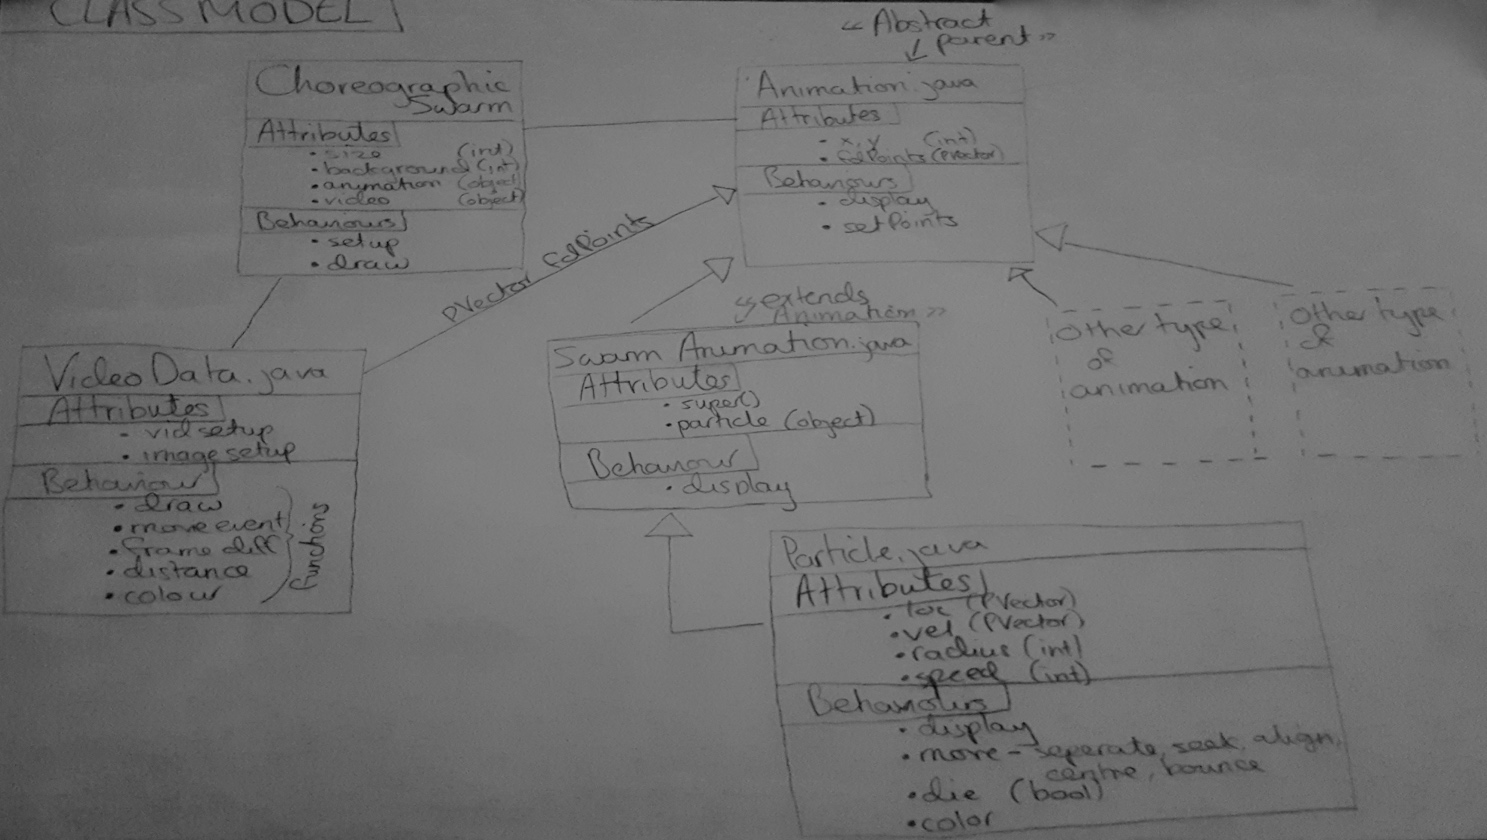 CLASS MODEL
Choreographic
Swarm
Attributes
• size (int)
• background (int)
• animation (object)
• video (object)
Behaviours
• setup
• draw
<< Abstract
parent >>
Animation.java
Attributes
• x, y (int)
• fdPoints (PVector)
Behaviours
• display
• setPoints
PVector fdPoints
<< extends
Animation >>
Video Data.java
Attributes
• vidsetup
• image setup
Behaviour
• draw
• move event
• frame diff
• distance
• colour
functions
Swarm Animation.java
Attributes
• super()
• particle (object)
Behaviour
• display
Other type
of
animation
Other type
of
animation
Particle.java
Attributes
• loc (PVector)
• vel (PVector)
• radius (int)
• speed (int)
Behaviours
• display
• move - seperate, seek, align,
centre, bounce
• die (bool)
• color